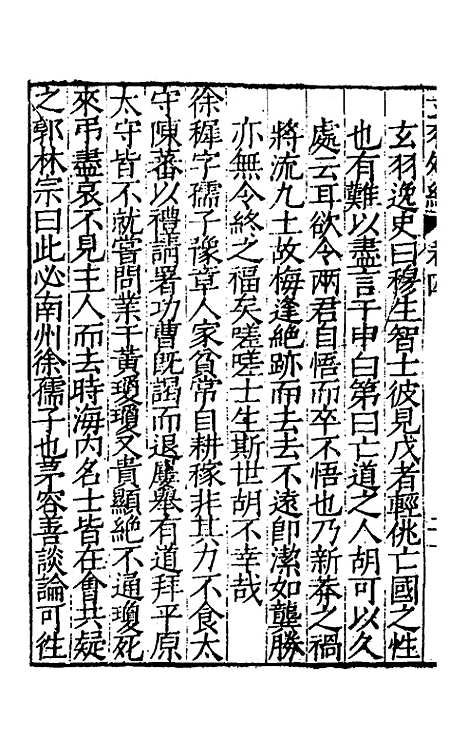 玄羽逸史曰穆生智士彼見戊者輕佻亡國之性
也有難以盡言于申白第曰亡道之人胡可以久
處云耳欲令兩君自悟而卒不悟也乃新莽之禍
將流九士故梅逢絕跡而去去不遠即潔如龔勝
亦無令終之福矣嗟嗟士生斯世胡不幸哉
徐穉字孺子豫章人家貧常自耕稼非其力不食太
守陳蕃以禮請署功曹既謁而退屢舉有道拜平原
太守皆不就嘗問業于黃瓊瓊又貴顯絕不通瓊死
來弔盡哀不見主人而去時海內名士皆在會共疑
之郭林宗曰此必南州徐孺子也茅容善談論可徃